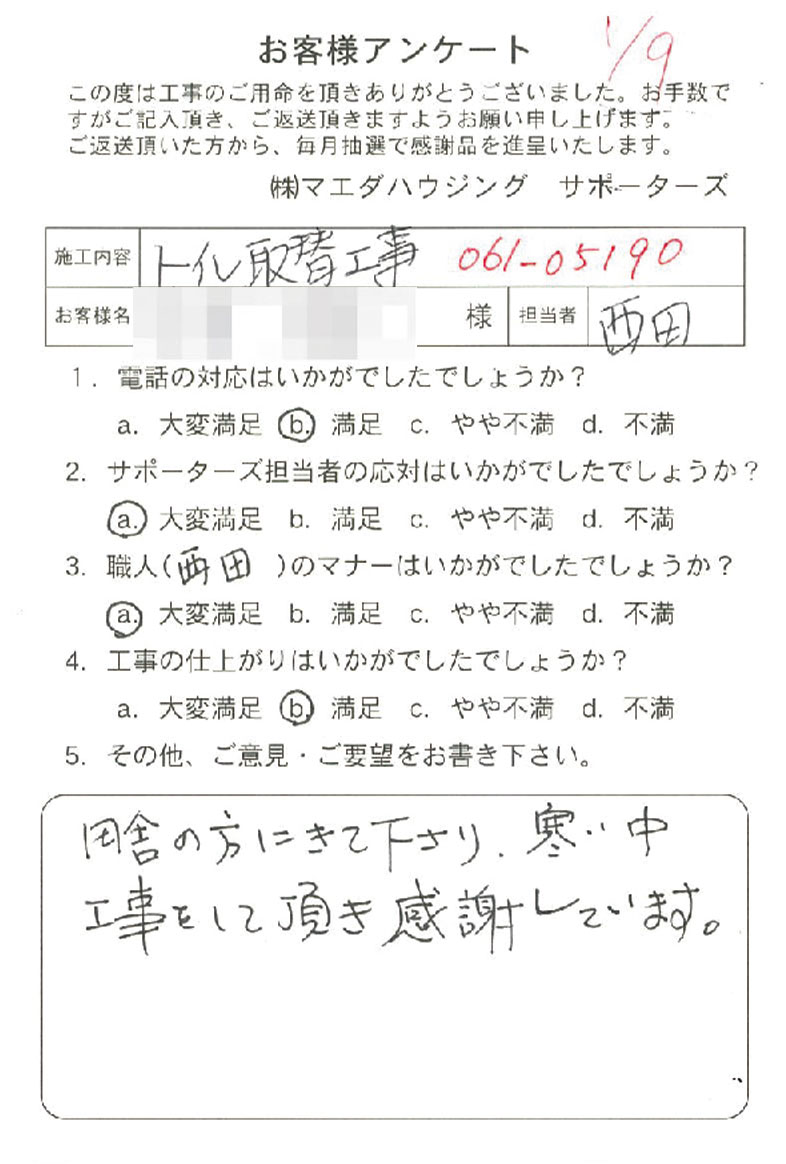 お客様アンケート
1/9
この度は工事のご用命を頂きありがとうございました。お手数で
すがご記入頂き、ご返送頂きますようお願い申し上げます。
ご返送頂いた方から、毎月抽選で感謝品を進呈いたします。
㈱マエダハウジング　サポーターズ
施工内容 トイレ取替工事 061-05190
お客様名 様 担当者 西田
1. 電話の対応はいかがでしたでしょうか？
a. 大変満足 b. 満足 c. やや不満 d. 不満
2. サポーターズ担当者の応対はいかがでしたでしょうか？
a. 大変満足 b. 満足 c. やや不満 d. 不満
3. 職人(西田 )のマナーはいかがでしたでしょうか？
a. 大変満足 b. 満足 c. やや不満 d. 不満
4. 工事の仕上がりはいかがでしたでしょうか？
a. 大変満足 b. 満足 c. やや不満 d. 不満
5. その他、ご意見・ご要望をお書き下さい。
田舎の方にきて下さり、寒い中
工事をして頂き感謝しています。